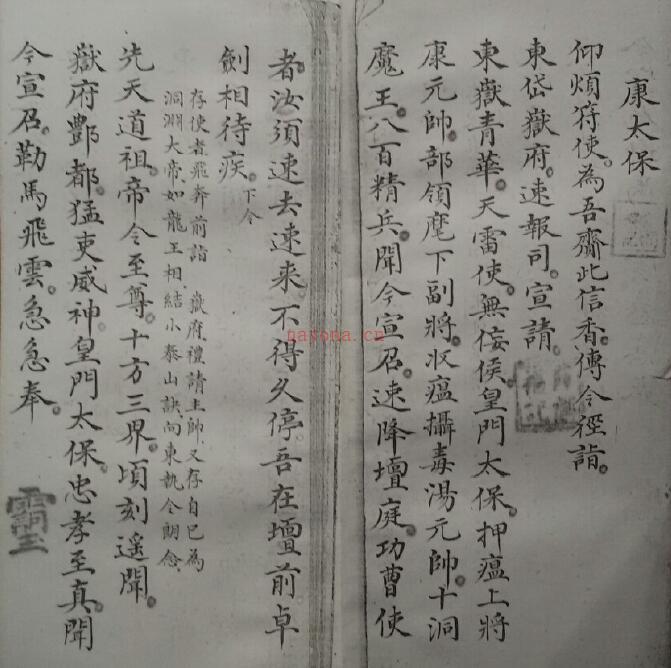 康太保
仰煩符使。為吾齎此信香。傳令徑詣。
東岱嶽府。速報司。宣請。
東嶽青華。天雷使。無侫侯。皇門太保。押瘟上將
康元帥。部領麾下副將。收瘟攝毒湯元帥。十洞
魔王。八百精兵。聞今宣召。速降壇庭。功曹使
者。汝須速去速來。不得久停。吾在壇前卓
劍相待疾。下令
存使者飛奔前詣 嶽府禮請主帥又存自已為
洞淵大帝、如龍王相、結小泰山訣向東執令朗念
先天道祖。帝令至尊。十方三界。頃刻遙聞。
嶽府酆都。猛吏威神。皇門太保。忠孝至真。聞
今宣召。勒馬飛雲。急急奉。
nayona.cn